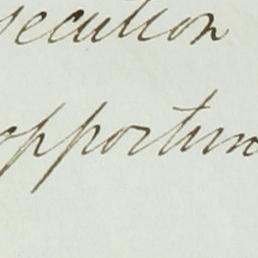 secution
opportun